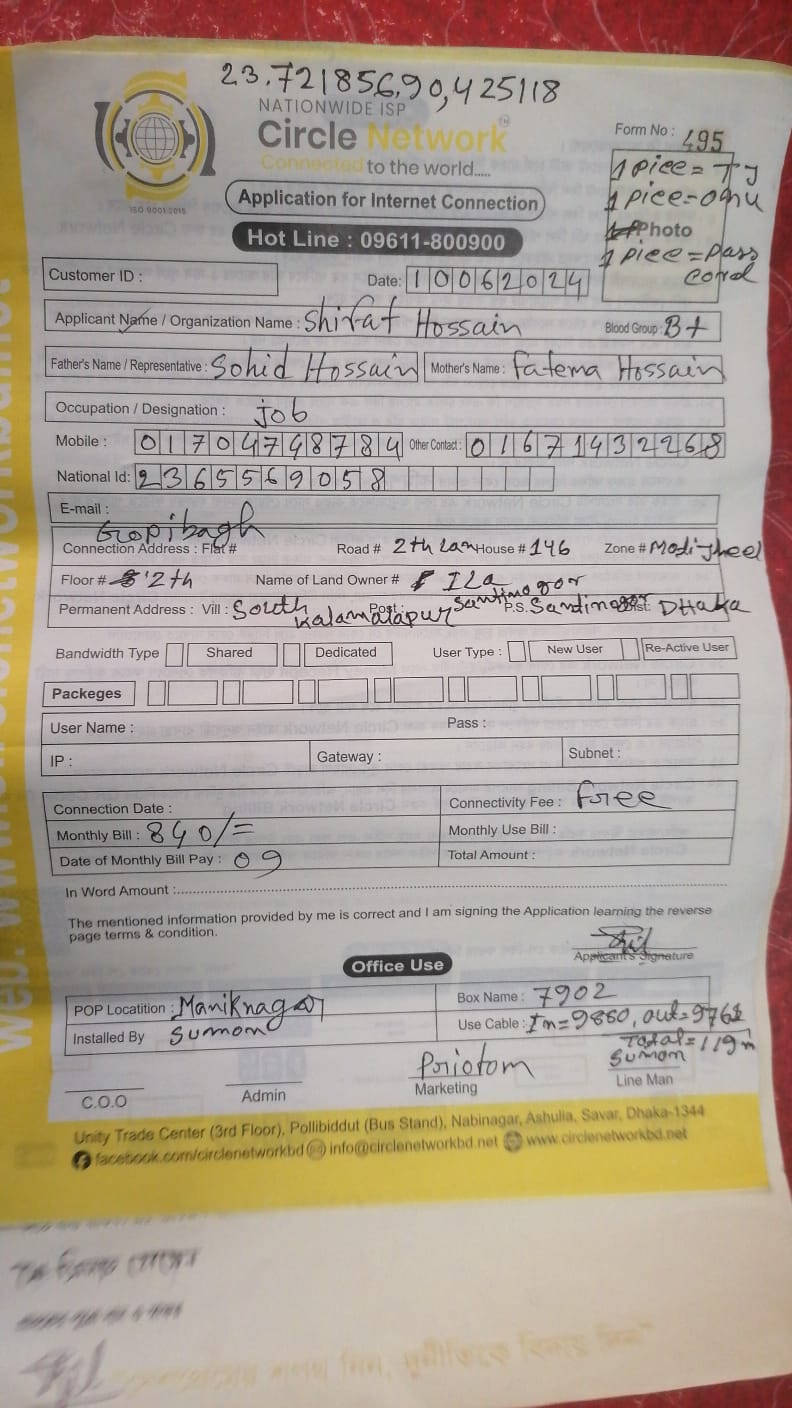 23.721856,90,425118
NATIONWIDE ISP
Circle Network
Connected to the world.....
ISO 9001:2015
Application for Internet Connection
Hot Line : 09611-800900
Form No : 495
1 piece = Tj
1 piece = onu
Photo
1 piece = Pass
cord
Customer ID :
Date: 10062024
Applicant Name / Organization Name : Shifat Hossain Blood Group : B+
Father's Name / Representative : Sohid Hossain Mother's Name : Fatema Hossain
Occupation / Designation : job
Mobile : 01704748784 Other Contact : 01671432268
National Id: 2365569058
E-mail :
Gopibagh
Connection Address : Flat # Road # 2th Lan House # 146 Zone # Modijheel
Floor # 2th Name of Land Owner # Ila
Permanent Address : Vill : South Kalamalapur Post : Santinogor P.S. Santinogor Dist: DHaka
Bandwidth Type Shared Dedicated User Type : New User Re-Active User
Packeges
User Name : Pass :
IP : Gateway : Subnet :
Connection Date : Connectivity Fee : free
Monthly Bill : 840/= Monthly Use Bill :
Date of Monthly Bill Pay : 09 Total Amount :
In Word Amount :
The mentioned information provided by me is correct and I am signing the Application learning the reverse
page terms & condition.
Applicant's Signature
Office Use
POP Locatition : Maniknagor Box Name : 7902
Installed By Sumon Use Cable : In=9880, out=9761
Total=119m
Priotom Sumon
C.O.O Admin Marketing Line Man
Unity Trade Center (3rd Floor), Pollibiddut (Bus Stand), Nabinagar, Ashulia, Savar, Dhaka-1344
facebook.com/circlenetworkbd info@circlenetworkbd.net www.circlenetworkbd.net